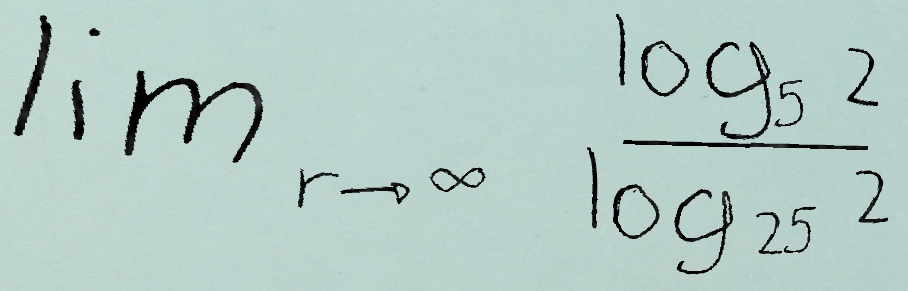 lim r→∞ log₅ 2 / log₂₅ 2